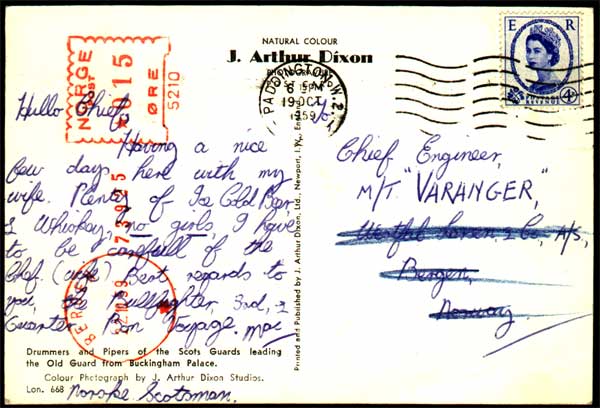 NATURAL COLOUR
J. Arthur Dixon
PHOTOGRAPH
NORGE
POST
015
ØRE
5210
PADDINGTON. W.2.
6 15PM
19 OCT
1959
E R
POSTAGE
REVENUE
4D
Hullo Chief,
Having a nice
few days here with my
wife. Plenty of Ice Cold Beer,
& Whiskey, no girls, I have
to be carefull of the
Chief. (wife) Best regards to
you, the Bullfighter, 3rd, &
Quarter. Bon Voyage.
BERGEN
Chief Engineer,
M/T "VARANGER",
Westfal Larsen & Co, A/S,
Bergen,
Norway
Printed and Published by J. Arthur Dixon, Ltd., Newport, I.W., England
Drummers and Pipers of the Scots Guards leading
the Old Guard from Buckingham Palace.
Colour Photograph by J. Arthur Dixon Studios.
Lon. 668
Norske Scotsman.